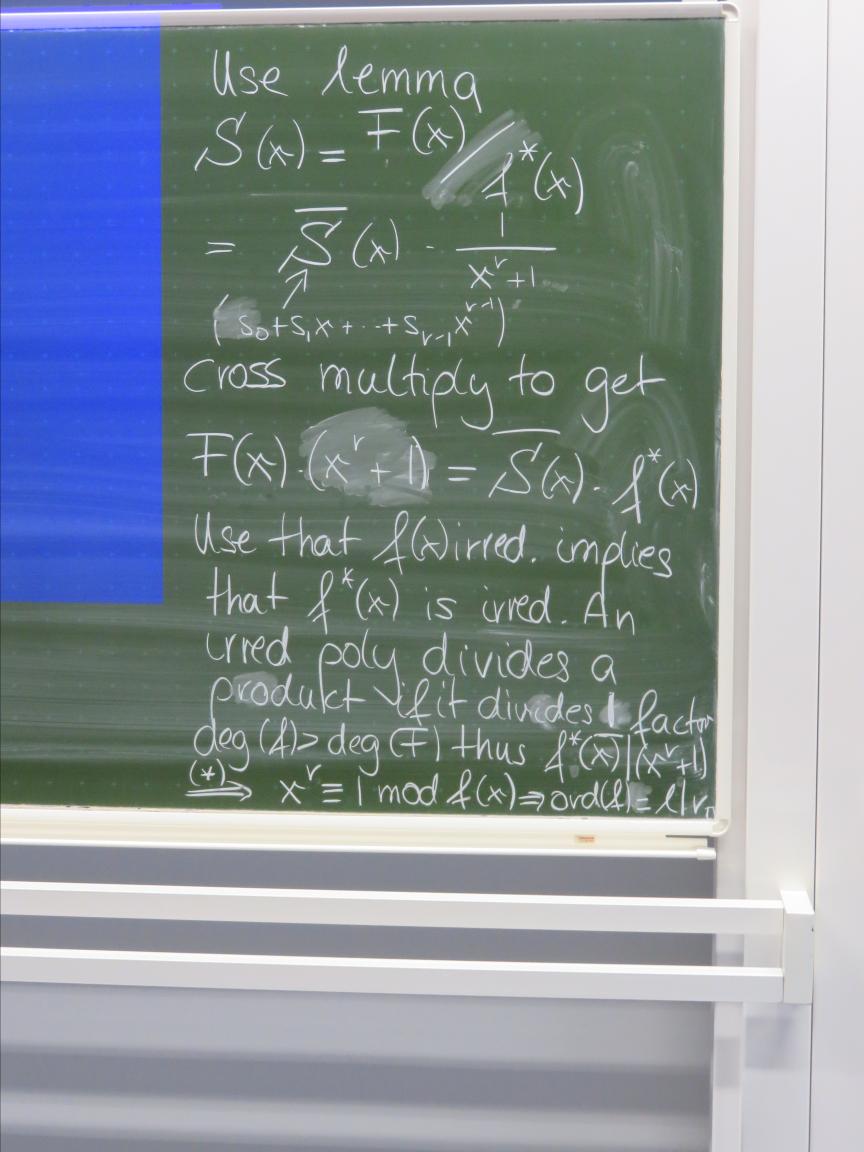 Use lemma
S(x) = F̅(x) / f*(x)
= S̅(x) · 1/(x^r+1)
(s₀+s₁x+··+s_{r-1}x^{r-1})
Cross multiply to get
F(x)·(x^r+1) = S̅(x)·f*(x)
Use that f(x) irred. implies
that f*(x) is irred. An
irred poly divides a
produkt if it divides 1 factor
deg(f)>deg(F̅) thus f*(x)|(x^r+1)
(*)⟹ x^r ≡ 1 mod f(x) ⇒ ord(f)= l|r